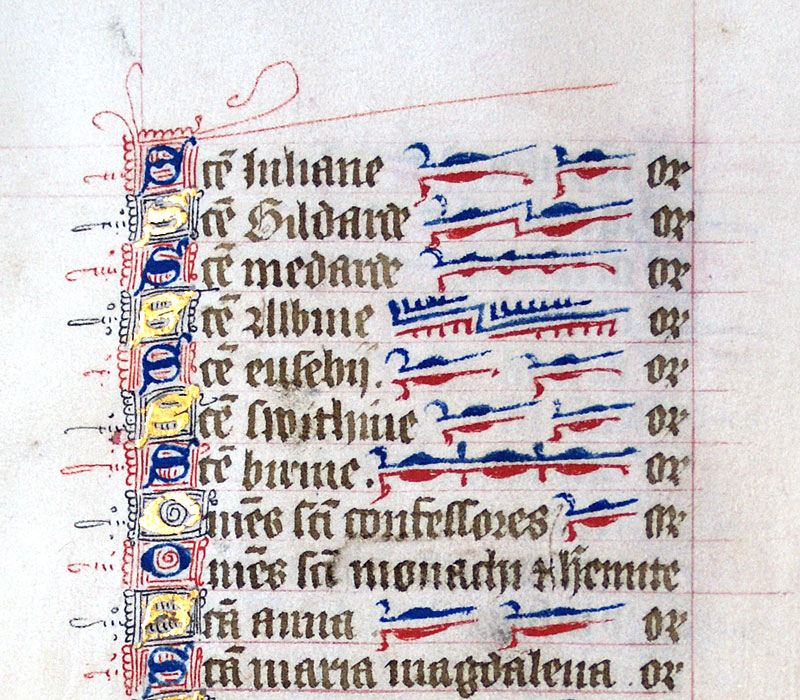 Scē Iuliane or
Scē Gildarde or
Scē medarde or
Scē Albine or
Scē eusebij. or
Scē swithine or
Scē birine. or
Om̄es sc̄i confessores or
Om̄es sc̄i monachi ⁊ h̄emite
Sc̄a anna or
Sc̄a maria magdalena. or